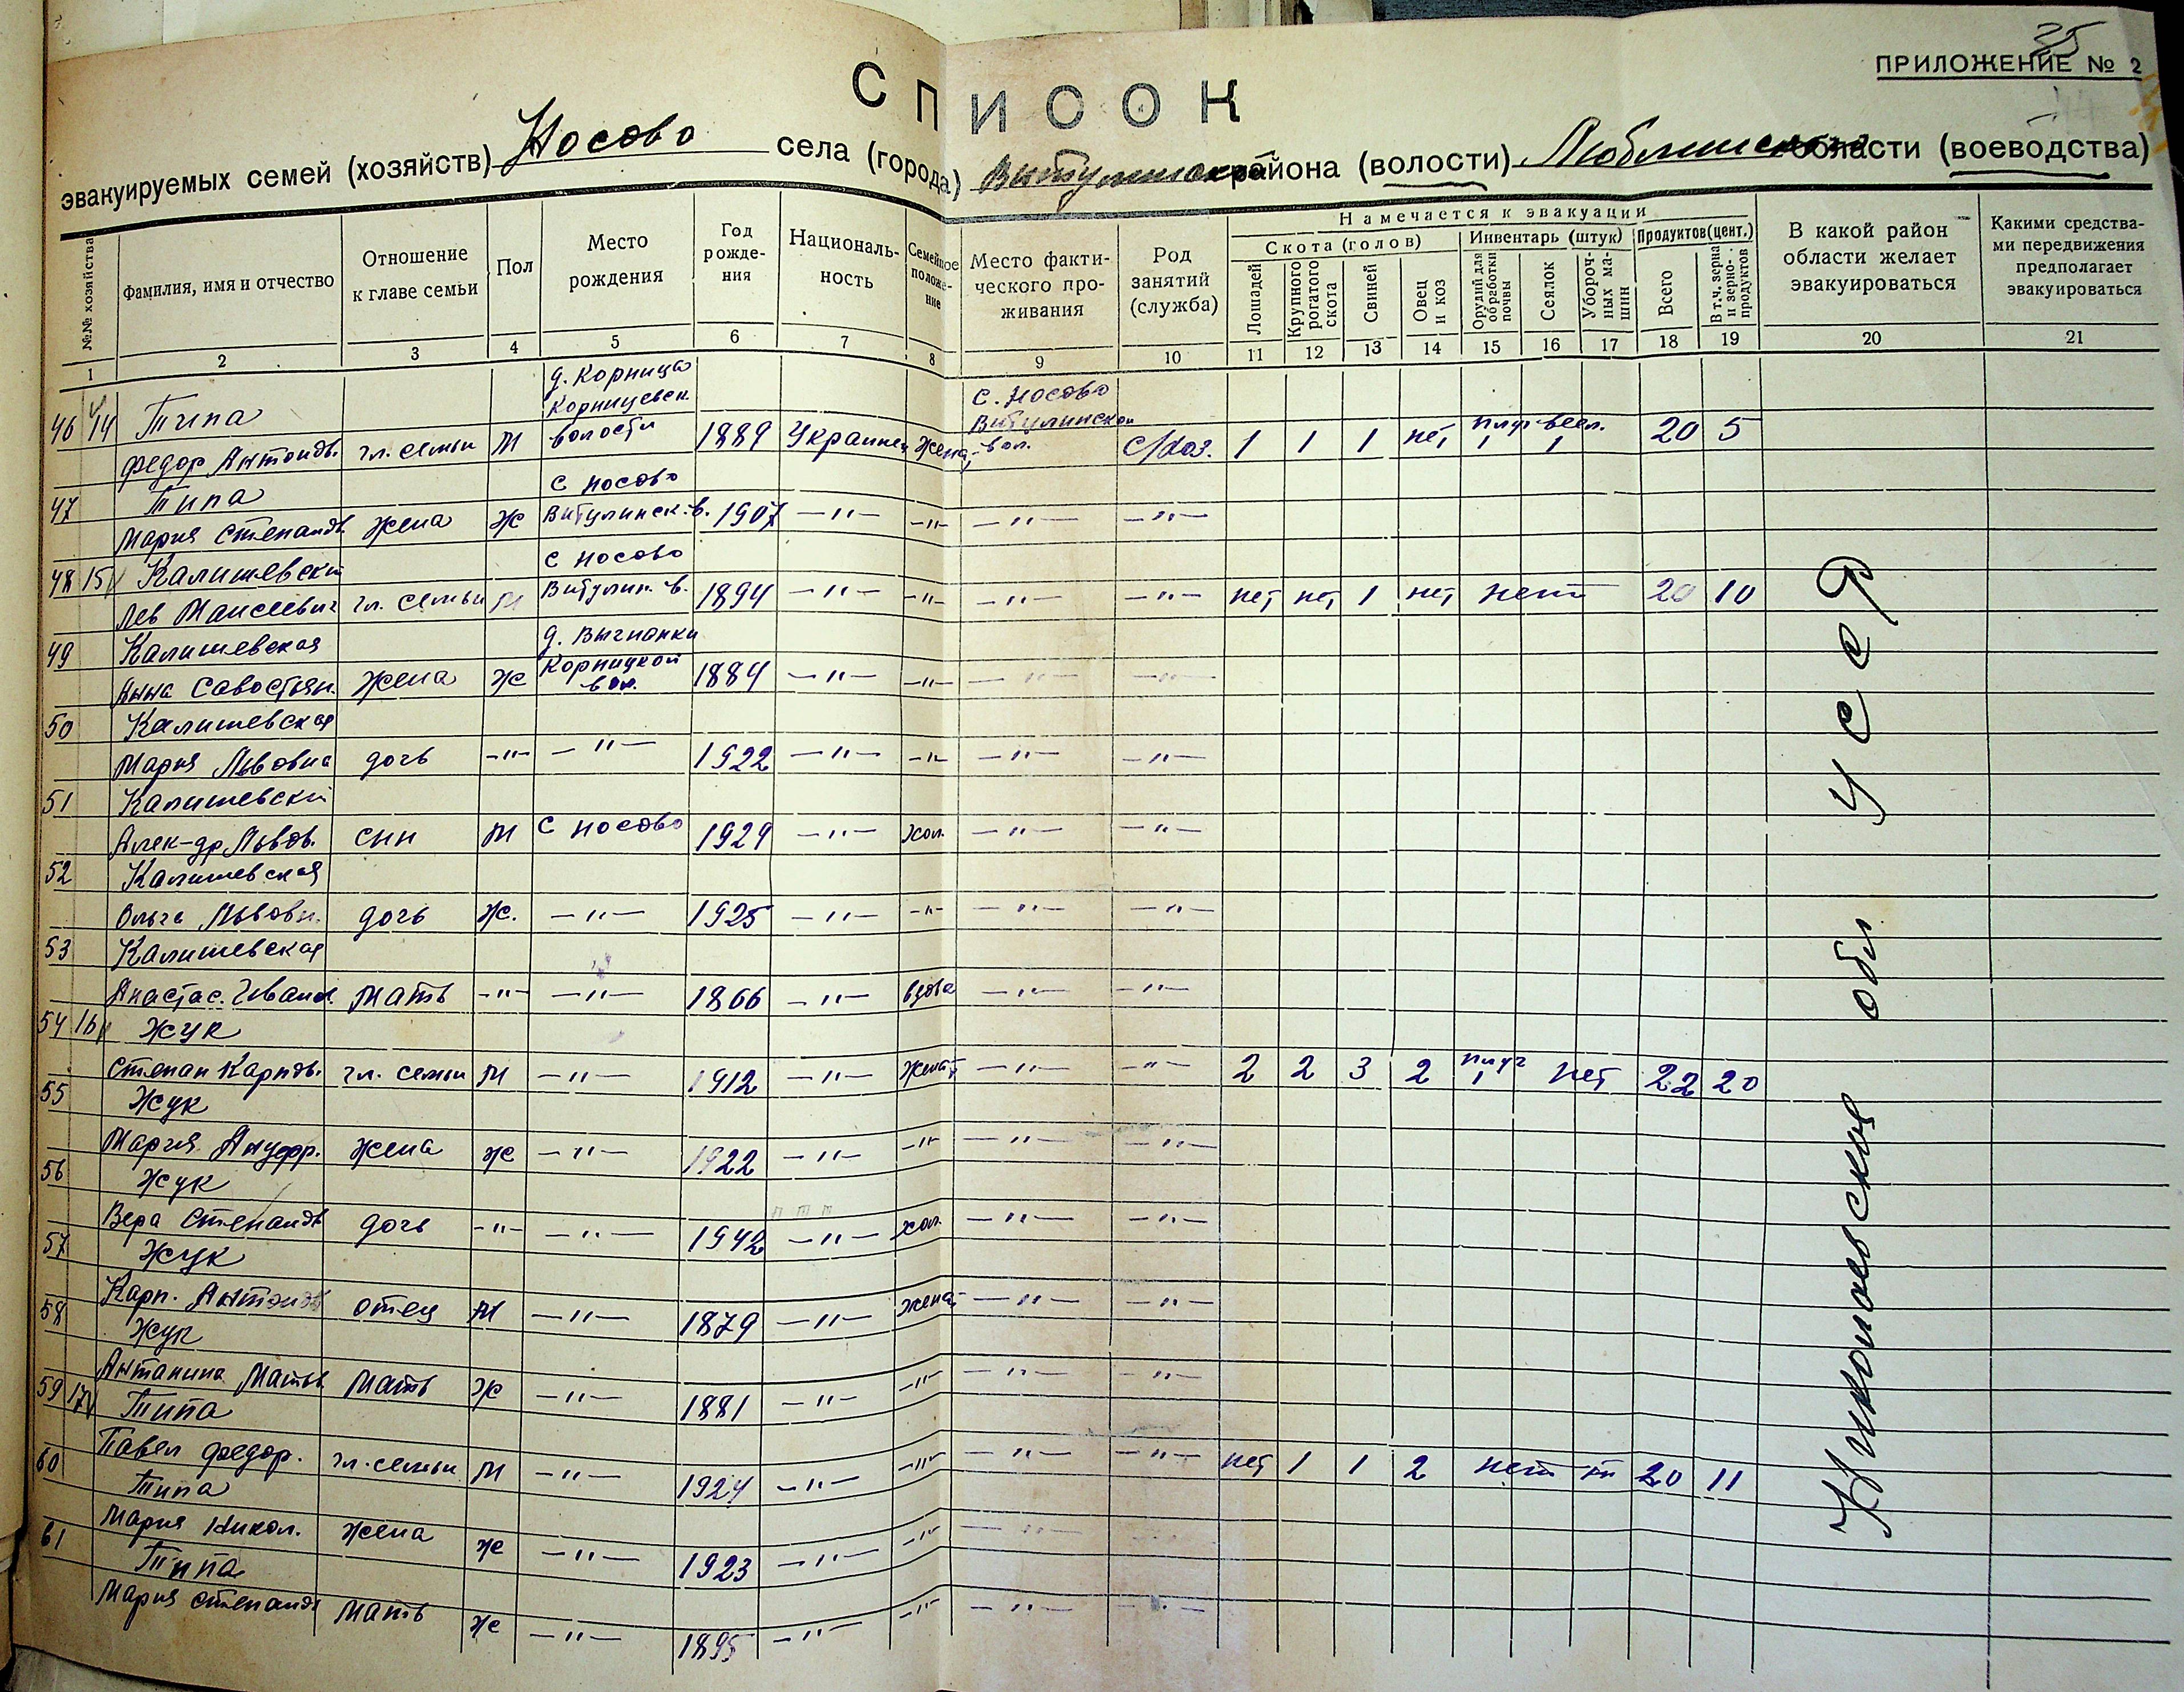 35
ПРИЛОЖЕНИЕ № 2
СПИСОК
эвакуируемых семей (хозяйств) Носово села (города) Витулинской района (волости) Люблинского области (воеводства)
№№ хозяйства
Фамилия, имя и отчество
Отношение к главе семьи
Пол
Место рождения
Год рожде-ния
Националь-ность
Семейное положе-ние
Место факти-ческого про-живания
Род занятий (служба)
Намечается к эвакуации
Скота (голов)
Инвентарь (штук)
Продуктов (цент.)
Лошадей
Крупного рогатого скота
Свиней
Овец и коз
Орудий для обработки почвы
Сеялок
Убороч-ных ма-шин
Всего
В т.ч. зерна и зерно-продуктов
В какой район области желает эвакуироваться
Какими средства-ми передвижения предполагает эвакуироваться
1 2 3 4 5 6 7 8 9 10 11 12 13 14 15 16 17 18 19 20 21
46 14 Типа д. Корница Корницевск с. Носово Витулинской
Федор Антонов. гл. семьи М волости 1889 Украинец Женат вол. с/хоз. 1 1 1 нет плуг 1 1 20 5
47 Типа с Носово
Мария Степанов Жена Ж Витулинск. в. 1907 —"— —"— —"— —"—
48 15 Калишевский с Носово
Лев Моисеевич гл. семьи М Витулин. в. 1894 —"— —"— —"— —"— нет нет 1 нет нет 20 10
49 Калишевская д. Выгнанки
Анна Савостьян. Жена Ж Корницкой вол. 1884 —"— —"— —"— —"—
50 Калишевская
Мария Львовна дочь —"— —"— 1922 —"— —"— —"— —"—
51 Калишевский
Алек-др Львов. сын М с Носово 1929 —"— хол. —"— —"—
52 Калишевская
Ольга Львовн. дочь Ж. —"— 1925 —"— —"— —"— —"—
53 Калишевская
Анастас. Иванов. Мать —"— —"— 1866 —"— вдова —"— —"—
54 16 Жук
Степан Карпов. гл. семьи М —"— 1912 —"— женат —"— —"— 2 2 3 2 плуг 1 нет 22 20
55 Жук
Мария Ануфр. Жена Ж —"— 1922 —"— —"— —"— —"—
56 Жук
Вера Степанов дочь —"— —"— 1942 —"— хол. —"— —"—
57 Жук
Карп. Антонов отец М —"— 1879 —"— женат —"— —"—
58 Жук
Антанина Матв Мать Ж —"— 1881 —"— —"— —"— —"—
59 17 Типа
Павел Федор. гл. семьи М —"— 1924 —"— —"— —"— —"— нет 1 1 2 нет 20 11
60 Типа
Мария Никол. Жена Ж —"— 1923 —"— —"— —"— —"—
61 Типа
Мария Степанов Мать Ж —"— 1895 —"— —"— —"— —"—
Николаевская обл УССР